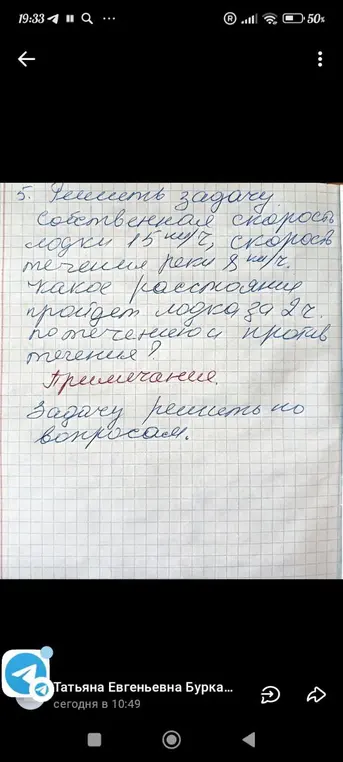 19:33
50%
5. Решить задачу.
Собственная скорость
лодки 15 км/ч, скорость
течения реки 8 км/ч.
Какое расстояние
пройдет лодка за 2 ч.
по течению и против
течения?
Примечание.
Задачу решить по
вопросам.
Татьяна Евгеньевна Бурка...
сегодня в 10:49